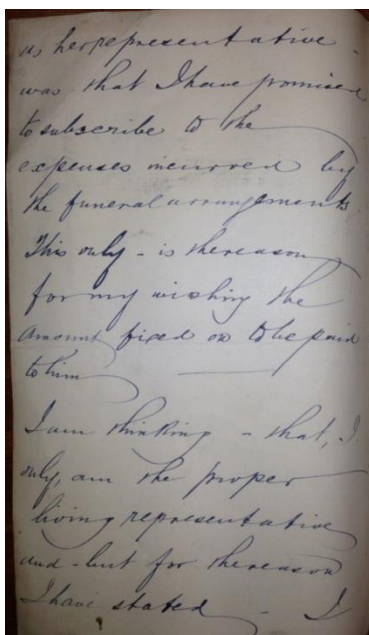 as her representative -
was that I have promised
to subscribe to the
expenses incurred by
the funeral arrangements.
This only - is the reason
for my wishing the
amount fixed on to be paid
to him
I am thinking - that, I
only, am the proper
living representative
and - but for the reason
I have stated - I